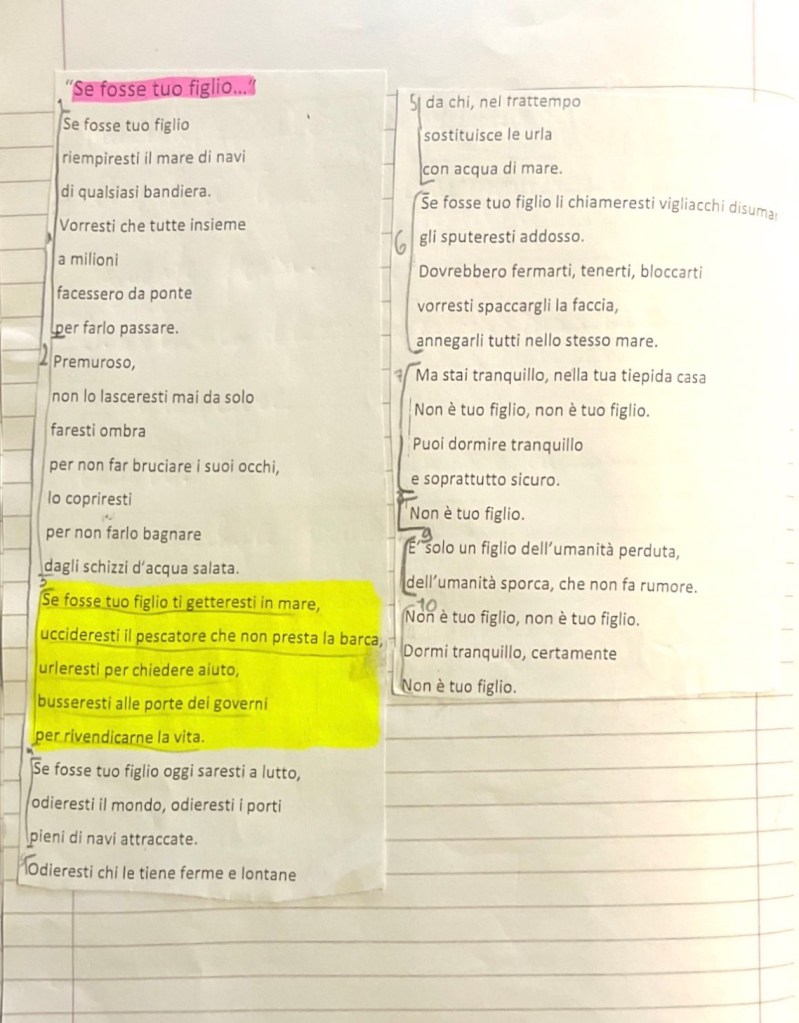 "Se fosse tuo figlio..."
1
Se fosse tuo figlio
riempiresti il mare di navi
di qualsiasi bandiera.
Vorresti che tutte insieme
a milioni
facessero da ponte
per farlo passare.
2 Premuroso,
non lo lasceresti mai da solo
faresti ombra
per non far bruciare i suoi occhi,
lo copriresti
per non farlo bagnare
dagli schizzi d'acqua salata.
3
Se fosse tuo figlio ti getteresti in mare,
uccideresti il pescatore che non presta la barca,
urleresti per chiedere aiuto,
busseresti alle porte dei governi
per rivendicarne la vita.
Se fosse tuo figlio oggi saresti a lutto,
odieresti il mondo, odieresti i porti
pieni di navi attraccate.
Odieresti chi le tiene ferme e lontane
5 da chi, nel frattempo
sostituisce le urla
con acqua di mare.
Se fosse tuo figlio li chiameresti vigliacchi disuma
6 gli sputeresti addosso.
Dovrebbero fermarti, tenerti, bloccarti
vorresti spaccargli la faccia,
annegarli tutti nello stesso mare.
7 Ma stai tranquillo, nella tua tiepida casa
Non è tuo figlio, non è tuo figlio.
Puoi dormire tranquillo
e soprattutto sicuro.
Non è tuo figlio.
9
E' solo un figlio dell'umanità perduta,
dell'umanità sporca, che non fa rumore.
10
Non è tuo figlio, non è tuo figlio.
Dormi tranquillo, certamente
Non è tuo figlio.